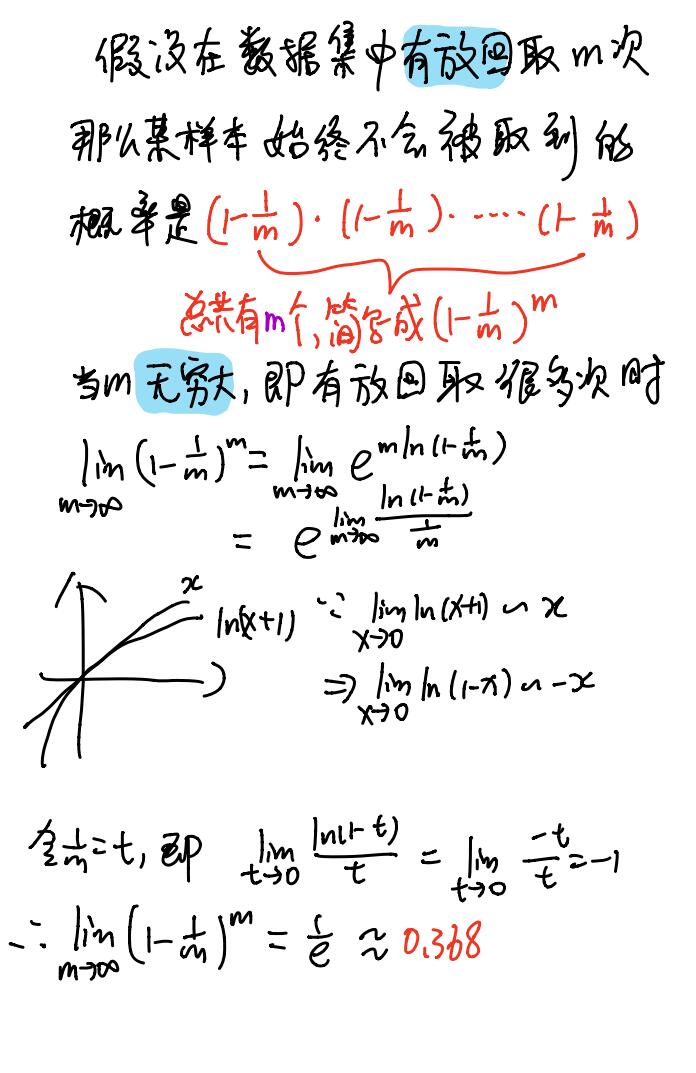 假设在数据集中有放回取m次
那么某样本始终不会被取到的
概率是(1-\frac{1}{m})·(1-\frac{1}{m})·……(1-\frac{1}{m})
总共有m个,简写成(1-\frac{1}{m})^m
当m无穷大,即有放回取很多次时
\lim_{m→∞}(1-\frac{1}{m})^m = \lim_{m→∞} e^{m\ln(1-\frac{1}{m})}
= e^{\lim_{m→∞}\frac{\ln(1-\frac{1}{m})}{\frac{1}{m}}}
x
ln(x+1)
∵ \lim_{x→0} ln(x+1) ~ x
⇒ \lim_{x→0} ln(1-x) ~ -x
令\frac{1}{m}=t, 即 \lim_{t→0}\frac{ln(1-t)}{t} = \lim_{t→0}\frac{-t}{t}=-1
∴ \lim_{m→∞}(1-\frac{1}{m})^m = \frac{1}{e} ≈ 0.368